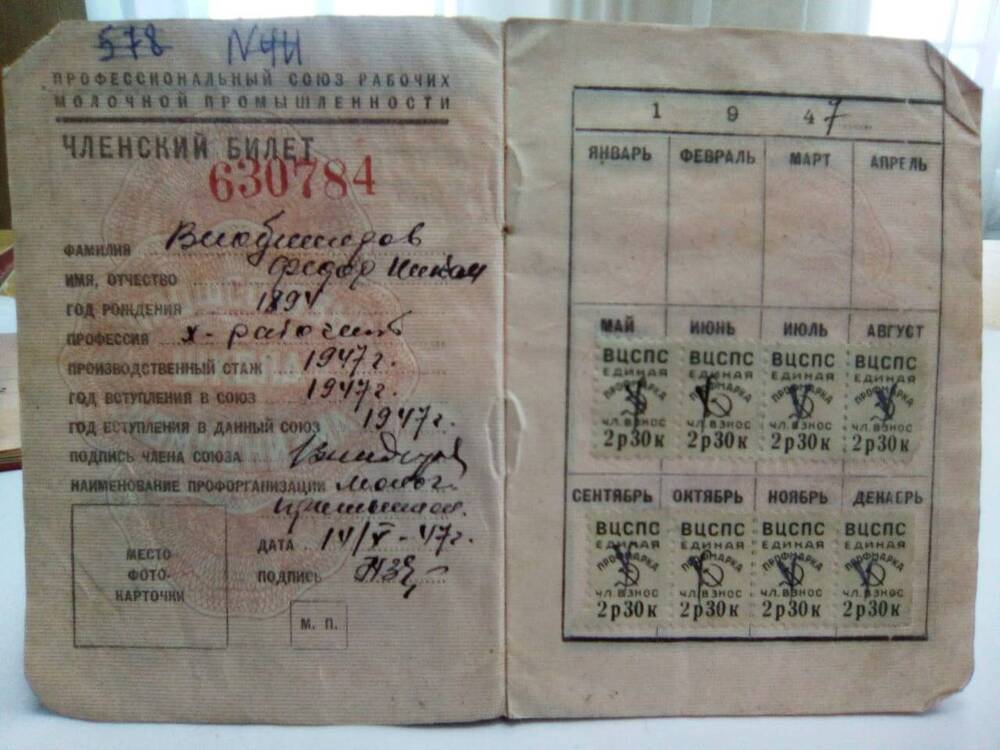 578 N411
ПРОФЕССИОНАЛЬНЫЙ СОЮЗ РАБОЧИХ
МОЛОЧНОЙ ПРОМЫШЛЕННОСТИ
ЧЛЕНСКИЙ БИЛЕТ
630784
ФАМИЛИЯ
ИМЯ, ОТЧЕСТВО Федор
ГОД РОЖДЕНИЯ
ПРОФЕССИЯ
ПРОИЗВОДСТВЕННЫЙ СТАЖ 1947г.
ГОД ВСТУПЛЕНИЯ В СОЮЗ 1947г.
ГОД ВСТУПЛЕНИЯ В ДАННЫЙ СОЮЗ 1947г.
ПОДПИСЬ ЧЛЕНА СОЮЗА
НАИМЕНОВАНИЕ ПРОФОРГАНИЗАЦИИ
ДАТА 14/X-47г.
ПОДПИСЬ
МЕСТО
ФОТО-
КАРТОЧКИ
М. П.
1 9 47
ЯНВАРЬ ФЕВРАЛЬ МАРТ АПРЕЛЬ
МАЙ ИЮНЬ ИЮЛЬ АВГУСТ
ВЦСПС ВЦСПС ВЦСПС ВЦСПС
ЕДИНАЯ ЕДИНАЯ ЕДИНАЯ ЕДИНАЯ
ПРОФМАРКА ПРОФМАРКА ПРОФМАРКА ПРОФМАРКА
ЧЛ.ВЗНОС ЧЛ.ВЗНОС ЧЛ.ВЗНОС ЧЛ.ВЗНОС
2р30к 2р30к 2р30к 2р30к
СЕНТЯБРЬ ОКТЯБРЬ НОЯБРЬ ДЕКАБРЬ
ВЦСПС ВЦСПС ВЦСПС ВЦСПС
ЕДИНАЯ ЕДИНАЯ ЕДИНАЯ ЕДИНАЯ
ПРОФМАРКА ПРОФМАРКА ПРОФМАРКА ПРОФМАРКА
ЧЛ.ВЗНОС ЧЛ.ВЗНОС ЧЛ.ВЗНОС ЧЛ.ВЗНОС
2р30к 2р30к 2р30к 2р30к